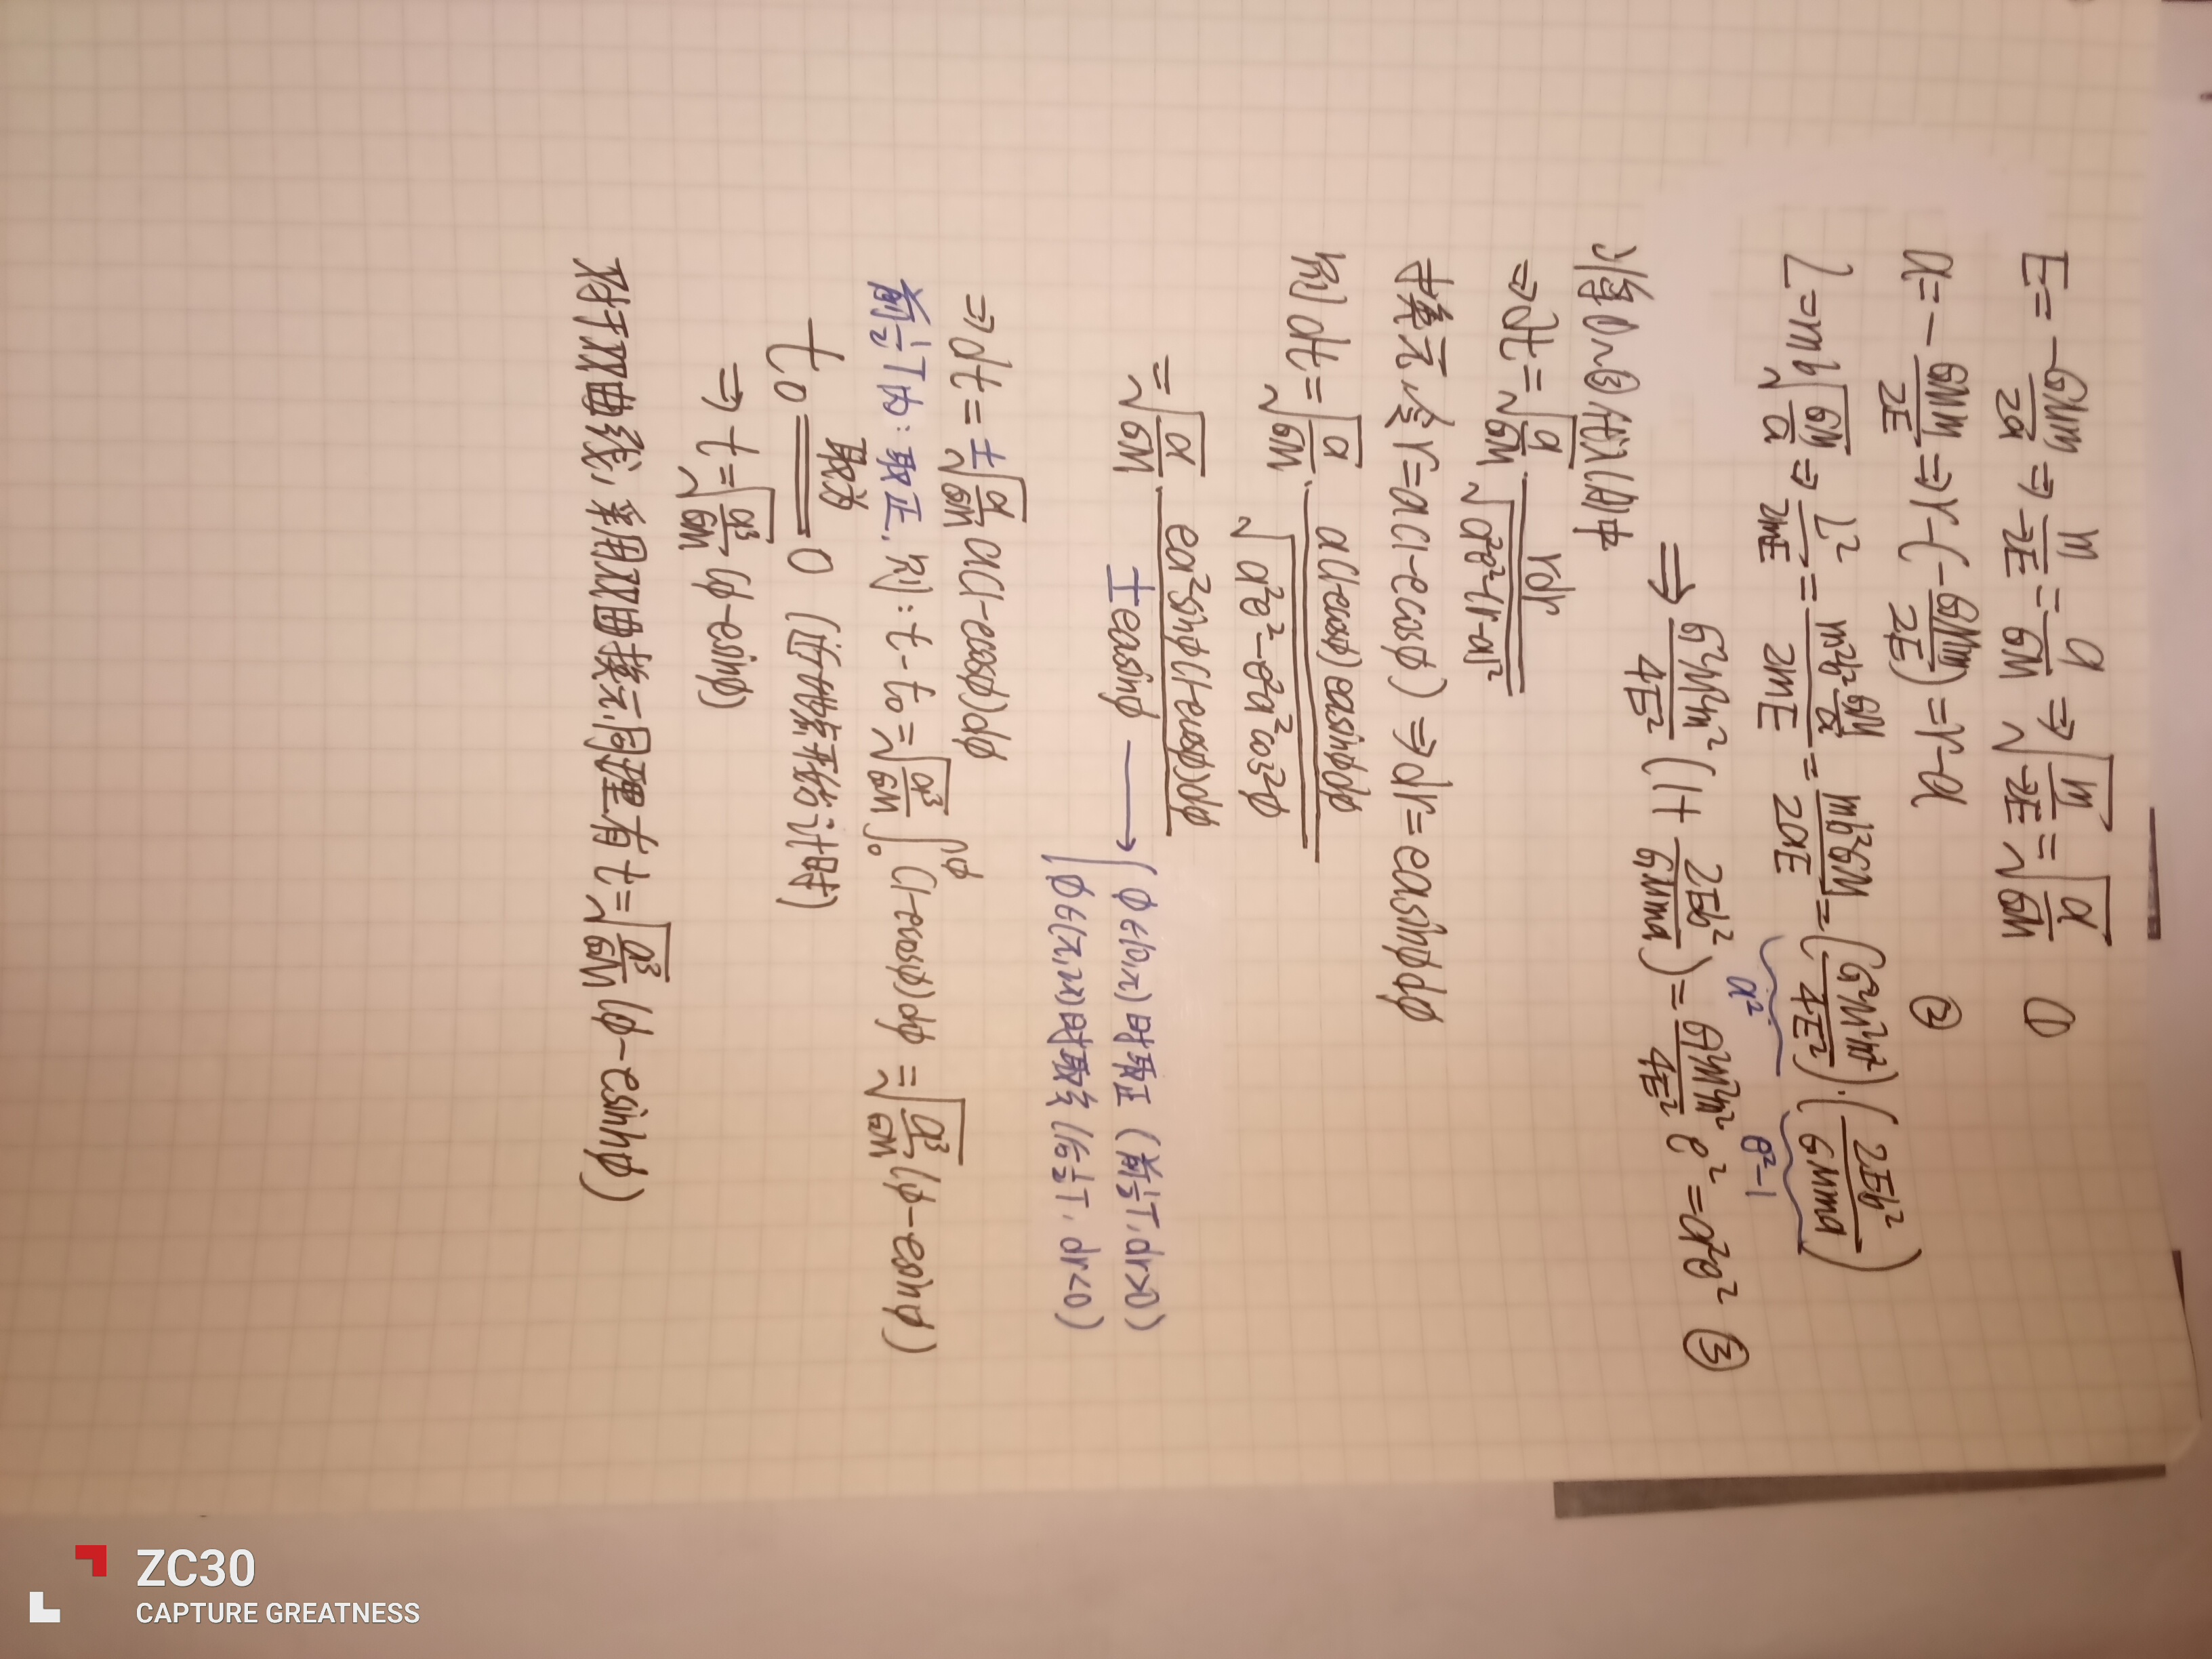 E = -GMm/2a ⇒ m/-2E = a/GM ⇒ √(m/-2E) = √(a/GM) ①
a = -GMm/2E ⇒ r-(-GMm/2E) = r-a ②
L = mb√(GM/a) ⇒ L²/2mE = m²b²(GM/a)/2mE = mb²GM/2aE = (G²M²m²/4E²)·(2Eb²/GMma)
a² e²-1
⇒ G²M²m²/4E² (1+ 2Eb²/GMma) = G²M²m²/4E² e² = a²e² ③
将①~③代入(A)中
⇒ dt = √(a/GM) · rdr/√(a²e²-(r-a)²)
换元,令r = a(1-ecosφ) ⇒ dr = easinφdφ
则 dt = √(a/GM) · a(1-ecosφ)easinφdφ/√(a²e²-e²a²cos²φ)
= √(a/GM) · ea²sinφ(1-ecosφ)dφ/±easinφ → { φ∈(0,π)时取正 (前½T, dr>0)
φ∈(π,2π)时取负 (后½T, dr<0)
⇒ dt = ±√(a/GM) a(1-ecosφ)dφ
前½T内: 取正, 则: t-t₀ = √(a³/GM) ∫₀^φ (1-ecosφ)dφ = √(a³/GM) (φ-esinφ)
t₀ 取为 0 (近地点开始计时)
⇒ t = √(a³/GM) (φ-esinφ)
对于双曲线, 采用双曲换元,同理有 t = √(a³/GM) (φ-esinhφ)
ZC30
CAPTURE GREATNESS